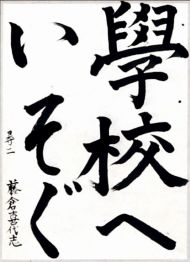 學校へ
いそぐ
尋二 藤倉喜代志